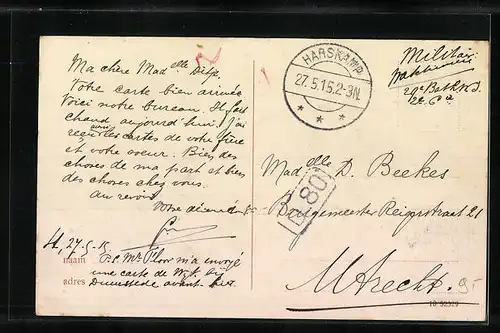 Ma chère Mad^elle Diep.
Votre carte bien arrivée
Voici notre bureau. Il fait
chaud aujourd'hui! J'ai
reçu aussi les cartes de votre frère
et votre soeur. Bien des
choses de ma part et bien
des choses chez vous.
au revoir
Votre dévoué
H, 27-5-15
naam P.S. Mr Floor m'a envoyé
une carte de Wijk bij
adres Duurstede avant hier
HARSKAMP
27.5.15.2-3N.
Militair
29e Bat. L.W.I.
2e Cie
Mad^elle D. Beekes
Burgemeester Reigerstraat 21
Utrecht.
B 80
9.-